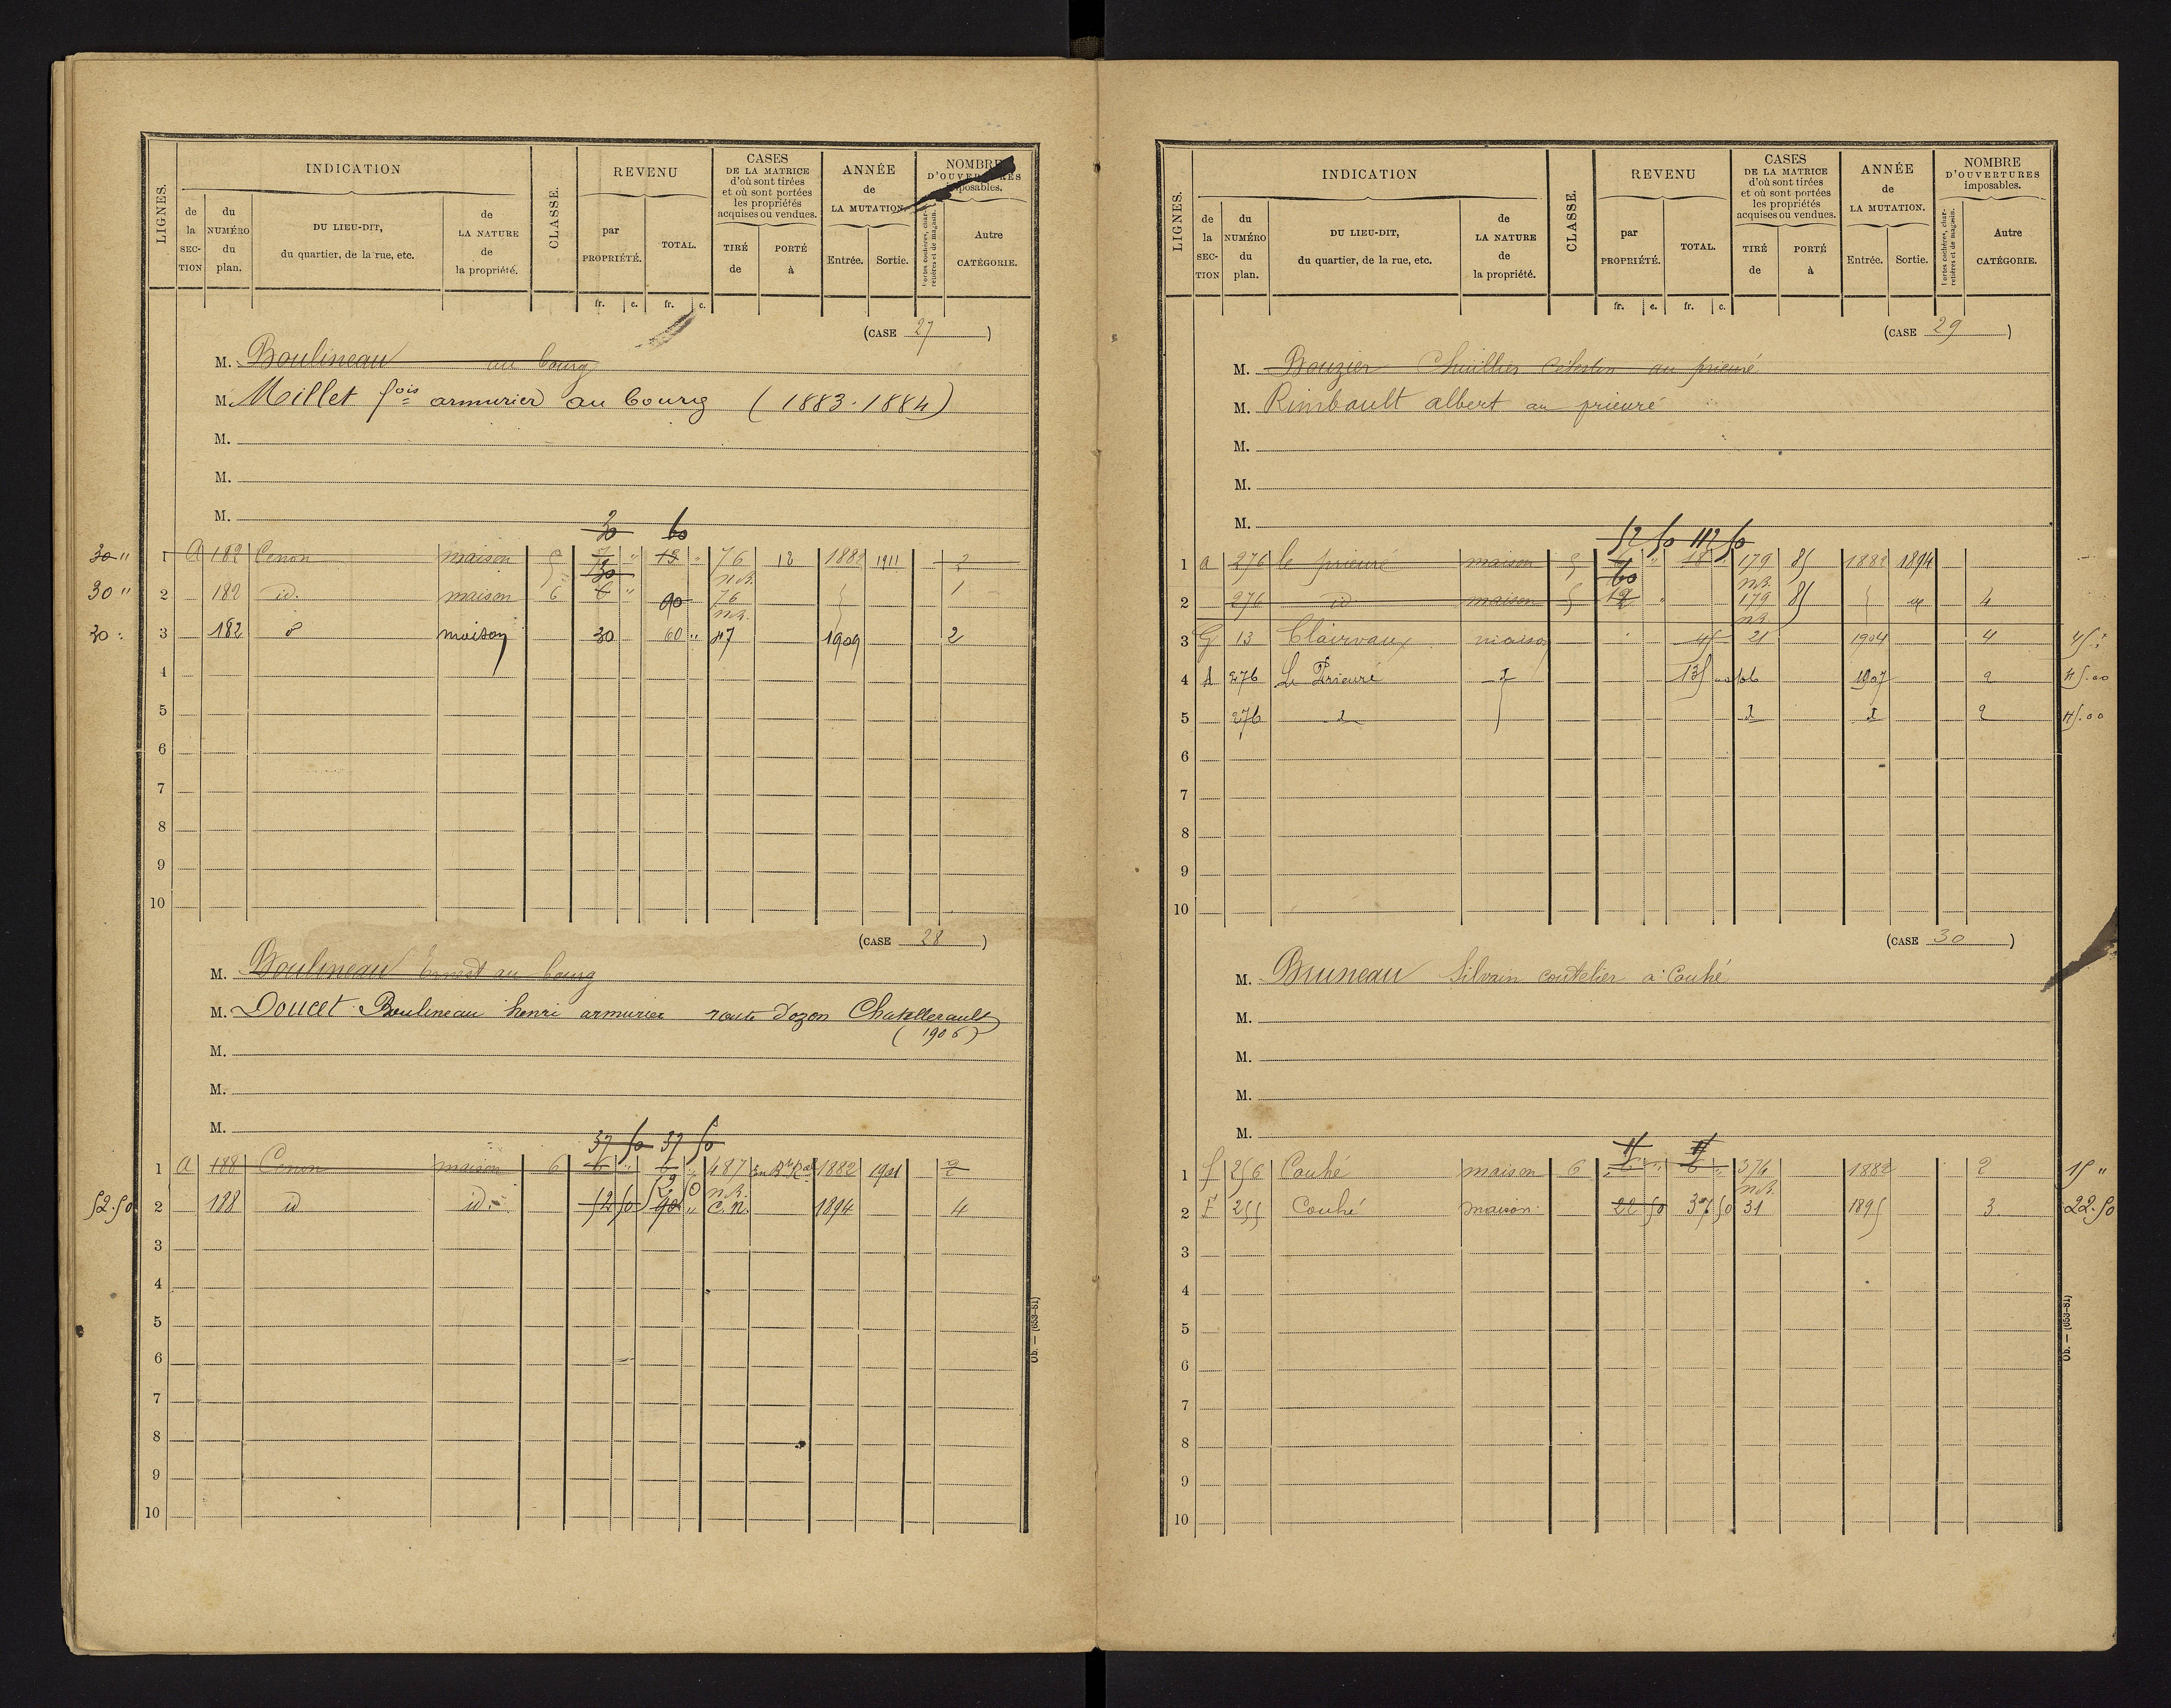 LIGNES. INDICATION CLASSE. REVENU CASES DE LA MATRICE d'où sont tirées et où sont portées les propriétés acquises ou vendues. ANNÉE de LA MUTATION. NOMBRE D'OUVERTURES imposables.
de la SECTION du NUMÉRO du plan. DU LIEU-DIT, du quartier, de la rue, etc. de LA NATURE de la propriété. par PROPRIÉTÉ. TOTAL. TIRÉ de PORTÉ à Entrée. Sortie. Portes cochères, charretières et de magasin. Autre CATÉGORIE.
fr. c. fr. c.
(CASE 27)
M. Boulineau au bourg
M. Millet fois armurier au bourg (1883-1884)
M.
M.
M.
30 60
30 " 1 A 182 Cenon maison 5 " 15 " 76 12 1882 1911 2
n.B.
30 " 2 182 id. maison 6 30 6 " 90 76 1
n.B.
30 3 182 d° maison 30 60 " 47 1909 2
4
5
6
7
8
9
10
(CASE 28)
M. Boulineau Ernest au bourg
M. Doucet Boulineau henri armurier route d'ozon Chatellerault
(1906)
M.
M.
M.
37 50 37 50
1 A 188 Cenon maison 6 6 " 6 " 487 1882 1901 2
n.B.
52.50 2 188 id id. 52 50 52 50 90 " C.N. 1894 4
3
4
5
6
7
8
9
10
Ob. — (653-81)
LIGNES. INDICATION CLASSE. REVENU CASES DE LA MATRICE d'où sont tirées et où sont portées les propriétés acquises ou vendues. ANNÉE de LA MUTATION. NOMBRE D'OUVERTURES imposables.
de la SECTION du NUMÉRO du plan. DU LIEU-DIT, du quartier, de la rue, etc. de LA NATURE de la propriété. par PROPRIÉTÉ. TOTAL. TIRÉ de PORTÉ à Entrée. Sortie. Portes cochères, charretières et de magasin. Autre CATÉGORIE.
fr. c. fr. c.
(CASE 29)
M. Bouzier Célestin au prieuré
M. Rimbault albert au prieuré
M.
M.
M.
52 50 112 50
1 a 276 le prieuré maison 5 6 " 18 " 179 85 1882 1894
60 n.B.
2 276 id maison 5 12 " 179 85 4
n.B.
3 G 13 Clairvaux maison 45 21 1904 4 45
4 A 276 Le Prieuré d 135 66 1907 2 45.00
5 276 d d d 2 45.00
6
7
8
9
10
(CASE 30)
M. Bruneau Silvain coutelier à Couhé
M.
M.
M.
M.
15 15
1 f 256 Couhé maison 6 6 " 6 " 374 1882 2 15 "
n.B.
2 F 255 Couhé maison 22 50 37 50 31 1895 3 22.50
3
4
5
6
7
8
9
10
Ob. — (653-81)